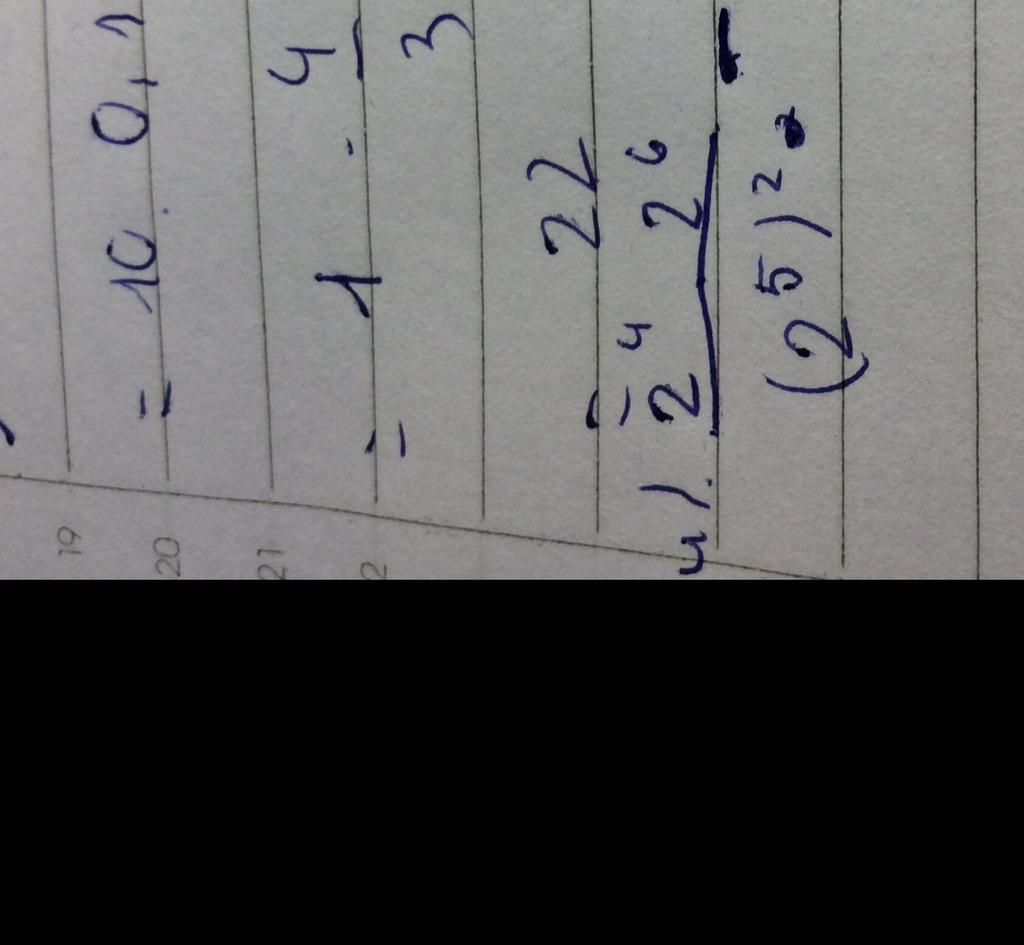 19
20 = 10 . 0,1
21
= 1 . 4/3
= 22
4). 2^4 2^6 / (2^5)^2